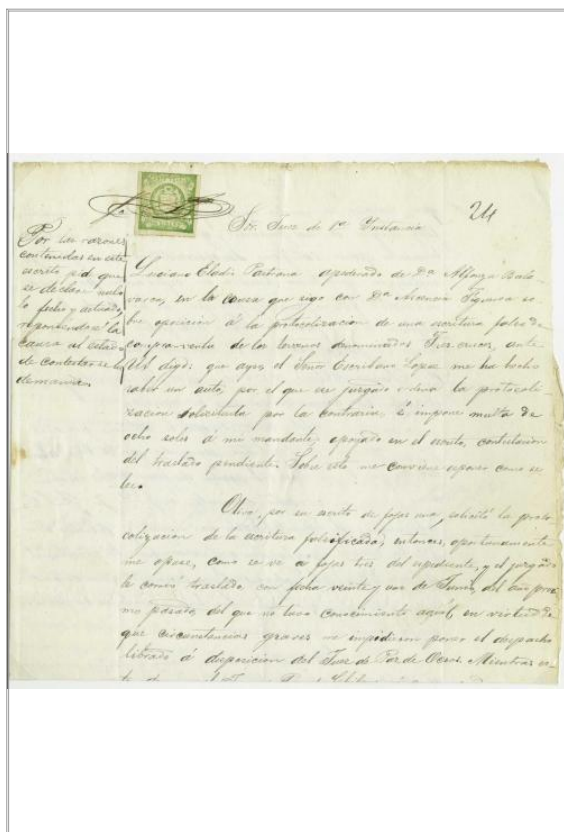 24
Sor. Juez de 1ª Instancia
Por las razones
contenidas en este
escrito pid que
se declare nulo
lo fecho y actuado,
reponiendose la
causa al estado
de contestarse la
demanda.
Luciano Eladio Pastrana apoderado de Dª Alfonza Balo-
varco, en la causa que sigo con Dª Ascencia Figueroa so-
bre oposicion á la protocolizacion de una escritura falsa de
compra-venta de los terrenos denominados Tres cruces, ante
Ud. digo: que ayer el Señor Escribano Lopez me ha hecho
saber un auto, por el que ese juzgado ordena la protocoli-
zacion solicitada por la contraria, é impone multa de
ocho soles á mi mandante, apoyado en el escrito, contestacion
del traslado pendiente. Sobre esto me conviene esponer como se
lee.
Olivo, por su escrito de fojas una, solicitó la proto-
colizacion de la escritura falsificada, entonces, oportunamente
me opuse, como se ve á fojas tres del espediente, y el juzgado
le corrió traslado con fecha veinte y uno de Junio, del año proxi-
mo pasado del que no tuvo conocimiento aquel, en virtud de
que circunstancias graves me impidieron poner el despacho
librado á disposicion del Juez de Paz de Ocros. Mientras es-